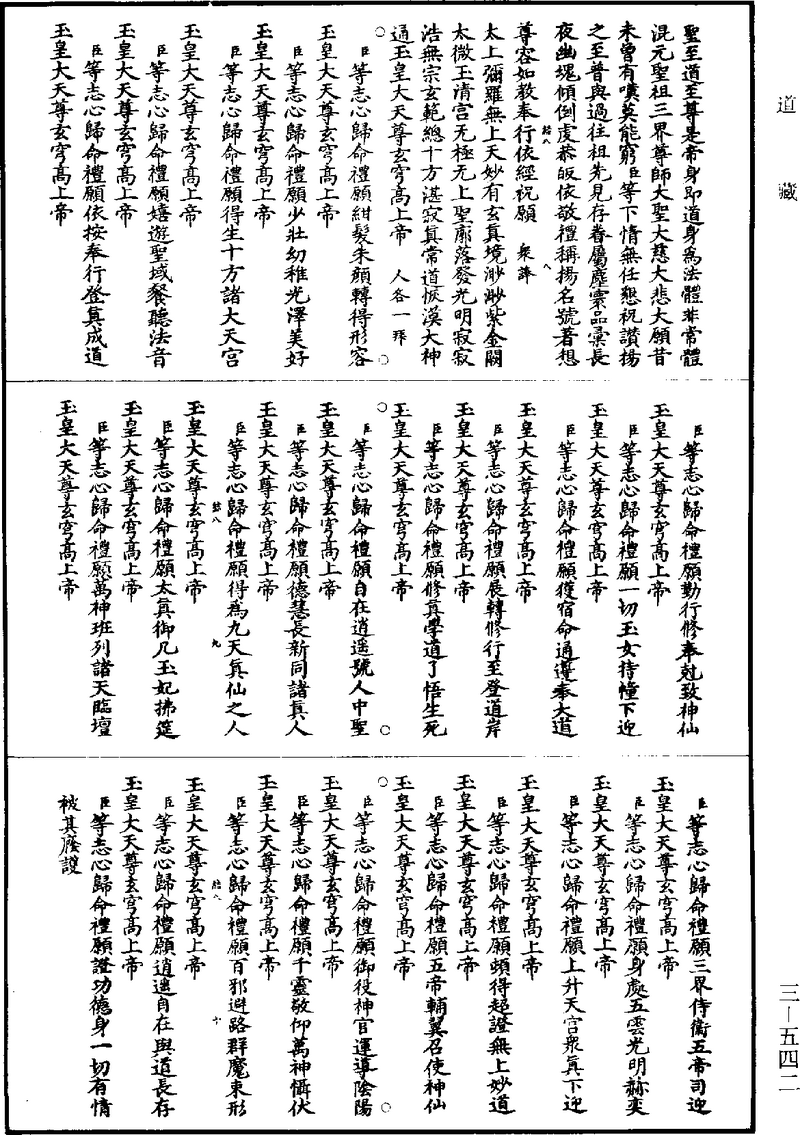 道藏
聖至道至尊是帝身即道身為法體非常體
混元聖祖三界尊師大聖大慈大悲大願昔
未曾有嘆莫能窮臣等下情無任懇祝讚揚
之至普與過往祖先見存眷屬塵寰品彙長
夜幽魂傾倒虔恭皈依敬禮稱揚名號著想
尊容如教奉行依經祝願 眾諱
太上彌羅無上天妙有玄真境渺渺紫金闕
太微玉清宮无極无上聖廓落發光明寂寂
浩無宗玄範總十方湛寂真常道恢漠大神
通玉皇大天尊玄穹高上帝 人各一拜
○ ○
臣等志心歸命禮願紺髮朱顏轉得形容
玉皇大天尊玄穹高上帝
臣等志心歸命禮願少壯幼稚光澤美好
玉皇大天尊玄穹高上帝
臣等志心歸命禮願得生十方諸大天宮
玉皇大天尊玄穹高上帝
臣等志心歸命禮願嬉遊聖域餐聽法音
玉皇大天尊玄穹高上帝
臣等志心歸命禮願依按奉行登真成道
玉皇大天尊玄穹高上帝
臣等志心歸命禮願勤行修奉剋致神仙
玉皇大天尊玄穹高上帝
臣等志心歸命禮願一切玉女持幢下迎
玉皇大天尊玄穹高上帝
臣等志心歸命禮願獲宿命通遵奉大道
玉皇大天尊玄穹高上帝
臣等志心歸命禮願展轉修行至登道岸
玉皇大天尊玄穹高上帝
臣等志心歸命禮願修真學道了悟生死
玉皇大天尊玄穹高上帝
○ ○
臣等志心歸命禮願自在逍遥號人中聖
玉皇大天尊玄穹高上帝
臣等志心歸命禮願德慧長新同諸真人
玉皇大天尊玄穹高上帝
臣等志心歸命禮願得為九天真仙之人
九
玉皇大天尊玄穹高上帝
臣等志心歸命禮願太真御几玉妃拂筵
玉皇大天尊玄穹高上帝
臣等志心歸命禮願萬神班列諸天臨壇
玉皇大天尊玄穹高上帝
臣等志心歸命禮願三界侍衛五帝司迎
玉皇大天尊玄穹高上帝
臣等志心歸命禮願身處五雲光明赫奕
玉皇大天尊玄穹高上帝
臣等志心歸命禮願上升天宮眾真下迎
玉皇大天尊玄穹高上帝
臣等志心歸命禮願頓得超證無上妙道
玉皇大天尊玄穹高上帝
臣等志心歸命禮願五帝輔翼召使神仙
玉皇大天尊玄穹高上帝
○ ○
臣等志心歸命禮願御役神官運導陰陽
玉皇大天尊玄穹高上帝
臣等志心歸命禮願千靈敬仰萬神懾伏
玉皇大天尊玄穹高上帝
臣等志心歸命禮願百邪避路群魔束形
十
玉皇大天尊玄穹高上帝
臣等志心歸命禮願逍遥自在與道長存
玉皇大天尊玄穹高上帝
臣等志心歸命禮願證功德身一切有情
被其廕護
三—五四二